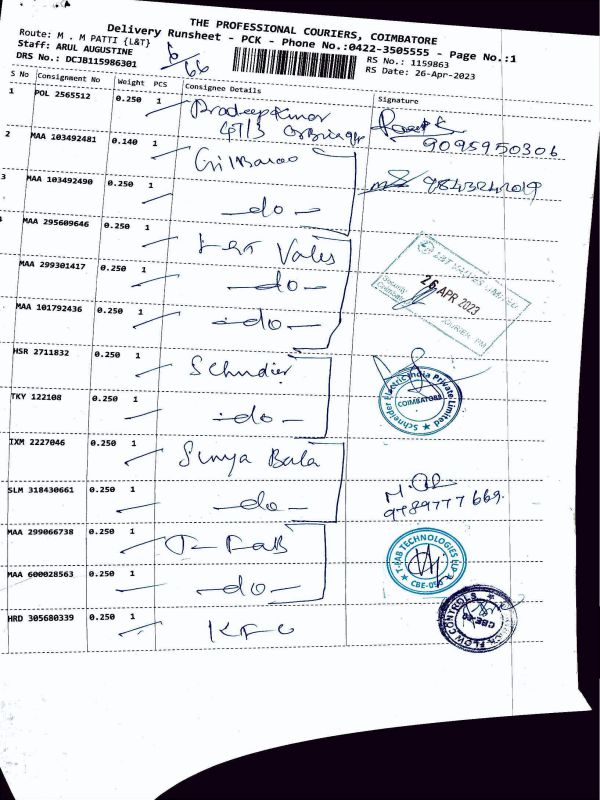 THE PROFESSIONAL COURIERS, COIMBATORE
Delivery Runsheet - PCK - Phone No.:0422-3505555 - Page No.:1
Route: M . M PATTI {L&T}
Staff: ARUL AUGUSTINE
RS No.: 1159863
DRS No.: DCJB115986301
RS Date: 26-Apr-2023
S No Consignment No Weight PCS Consignee Details Signature
1 POL 2565512 0.250 1 Pradeep Kumar
9095950306
2 MAA 103492481 0.140 1
3 MAA 103492490 0.250 1 -do-
9843242019
MAA 295609646 0.250 1 L&T Valves
MAA 299301417 0.250 1 -do-
L&T VALVES LIMITED
Security
26 APR 2023
MAA 101792436 0.250 1 -do-
HSR 2711832 0.250 1
Schneider Electric India Private Limited
COIMBATORE
TKY 122108 0.250 1 -do-
IXM 2227046 0.250 1 Surya Bala
SLM 318430661 0.250 1 -do-
9789777669.
MAA 299066738 0.250 1 T-FAB
T-FAB TECHNOLOGIES LLP
CBE-050
MAA 600028563 0.250 1 -do-
HRD 305680339 0.250 1
FLOW CONTROLS